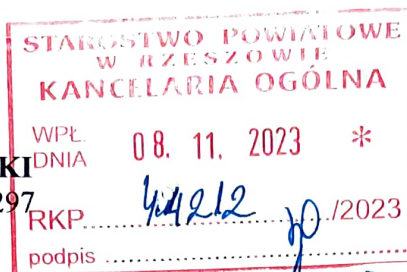 STAROSTWO POWIATOWE
W RZESZOWIE
KANCELARIA OGÓLNA
WPŁ.
DNIA 08. 11. 2023 *
KI
297
RKP........../2023
podpis ..........